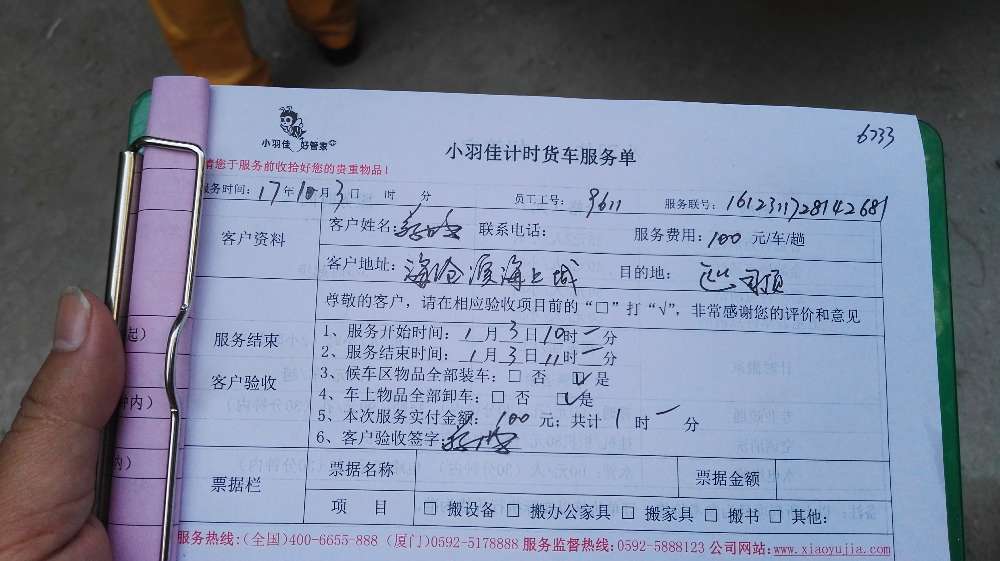 6733
小羽佳 好管家
小羽佳计时货车服务单
请您于服务前收拾好您的贵重物品!
服务时间: 17年10月3日 时 分 员工工号: 9611 服务联号: 1612311728142681
客户资料
客户姓名: 联系电话: 服务费用: 100 元/车/趟
客户地址: 海沧滨海上城 目的地:
尊敬的客户，请在相应验收项目前的“□”打“√”，非常感谢您的评价和意见
服务结束
客户验收
1、服务开始时间: 1月3日10时一分
2、服务结束时间: 1月3日11时一分
3、候车区物品全部装车: □ 否 ☑是
4、车上物品全部卸车: □ 否 ☑是
5、本次服务实付金额: 100 元; 共计 1 时 一 分
6、客户验收签字:
票据栏
票据名称 票据金额
项 目 □ 搬设备 □ 搬办公家具 □ 搬家具 □ 搬书 □ 其他:
服务热线:(全国)400-6655-888 (厦门)0592-5178888 服务监督热线:0592-5888123 公司网站:www.xiaoyujia.com